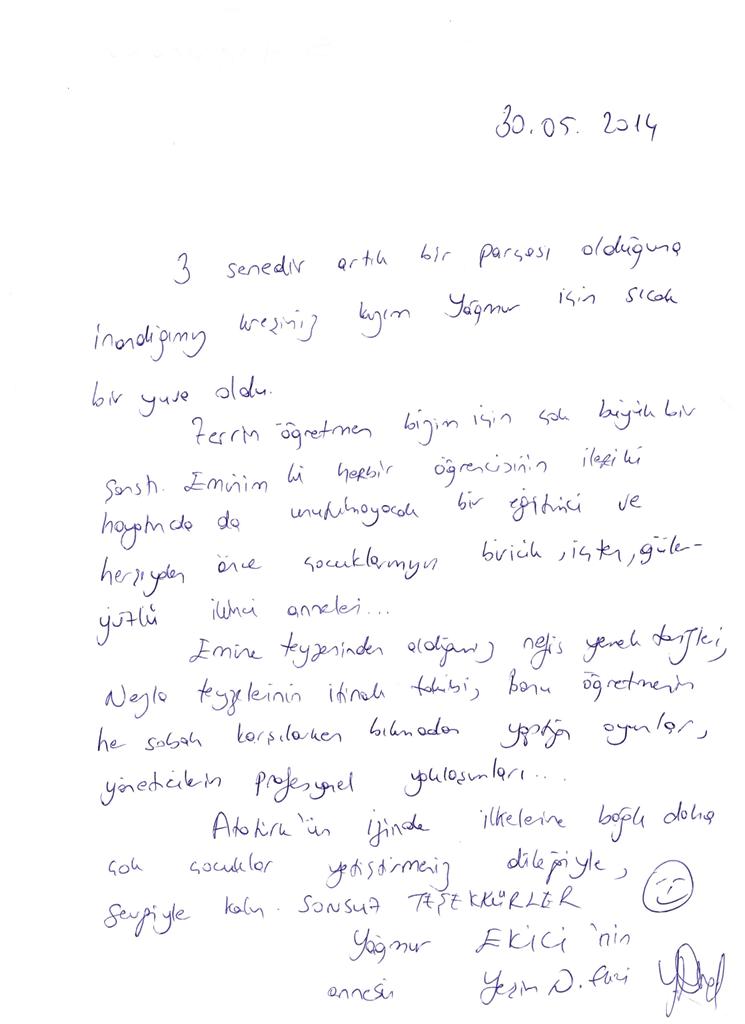 30.05.2014
3 senedir artık bir parçası olduğuna
inandığımız kreşiniz kızım Yağmur için sıcak
bir yuva oldu.
Zerrin öğretmen bizim için çok büyük bir
şanstı. Eminim ki herbir öğrencisinin ilerki
hayatında da unutulmayacak bir eğitimci ve
herşeyden önce çocuklarımızın biricik, içten, güler-
yüzlü ikinci anneleri...
Emine teyzesinden aldığımız nefis yemek tarifleri,
Nezla teyzelerinin itinalı takibi, Banu öğretmenin
he sabah karşılarken bıkmadan yaptığı oyunlar,
yöneticilerin profesyonel yaklaşımları...
Atatürk'ün izinde ilkelerine bağlı daha
çok çocuklar yetiştirmeniz dileğiyle,
Sevgiyle kalın. SONSUZ TEŞEKKÜRLER
Yağmur EKİCİ'nin
annesi Yeşim D.